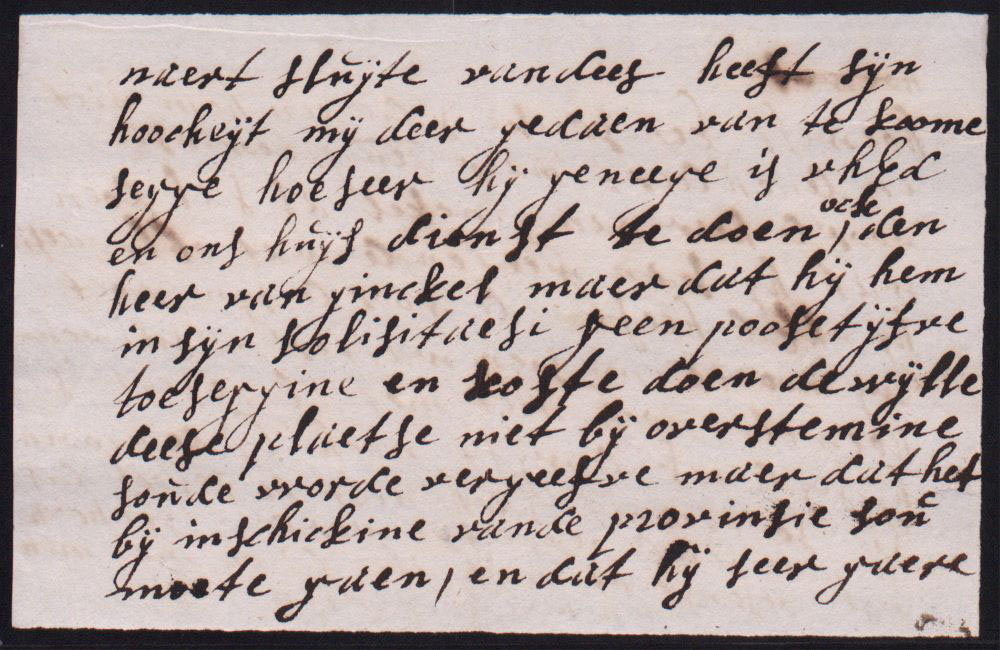 naert sluÿte vandees heeft sÿn
hoocheÿt mÿ deer gedaen van te koome
segge hoe seer hÿ geneege is vhEd
en ons huÿs dienst te doen, ock den
heer van ginckel maer dat hÿ hem
in sÿn solisitaesi geen poosetÿfve
toeseggine en koste doen dewÿlle
deese plaetse niet bÿ overstemine
soude worde vergeefve maer dat het
bÿ inschickine vande provinsie soú
moete gaen, en dat hÿ seer gaere